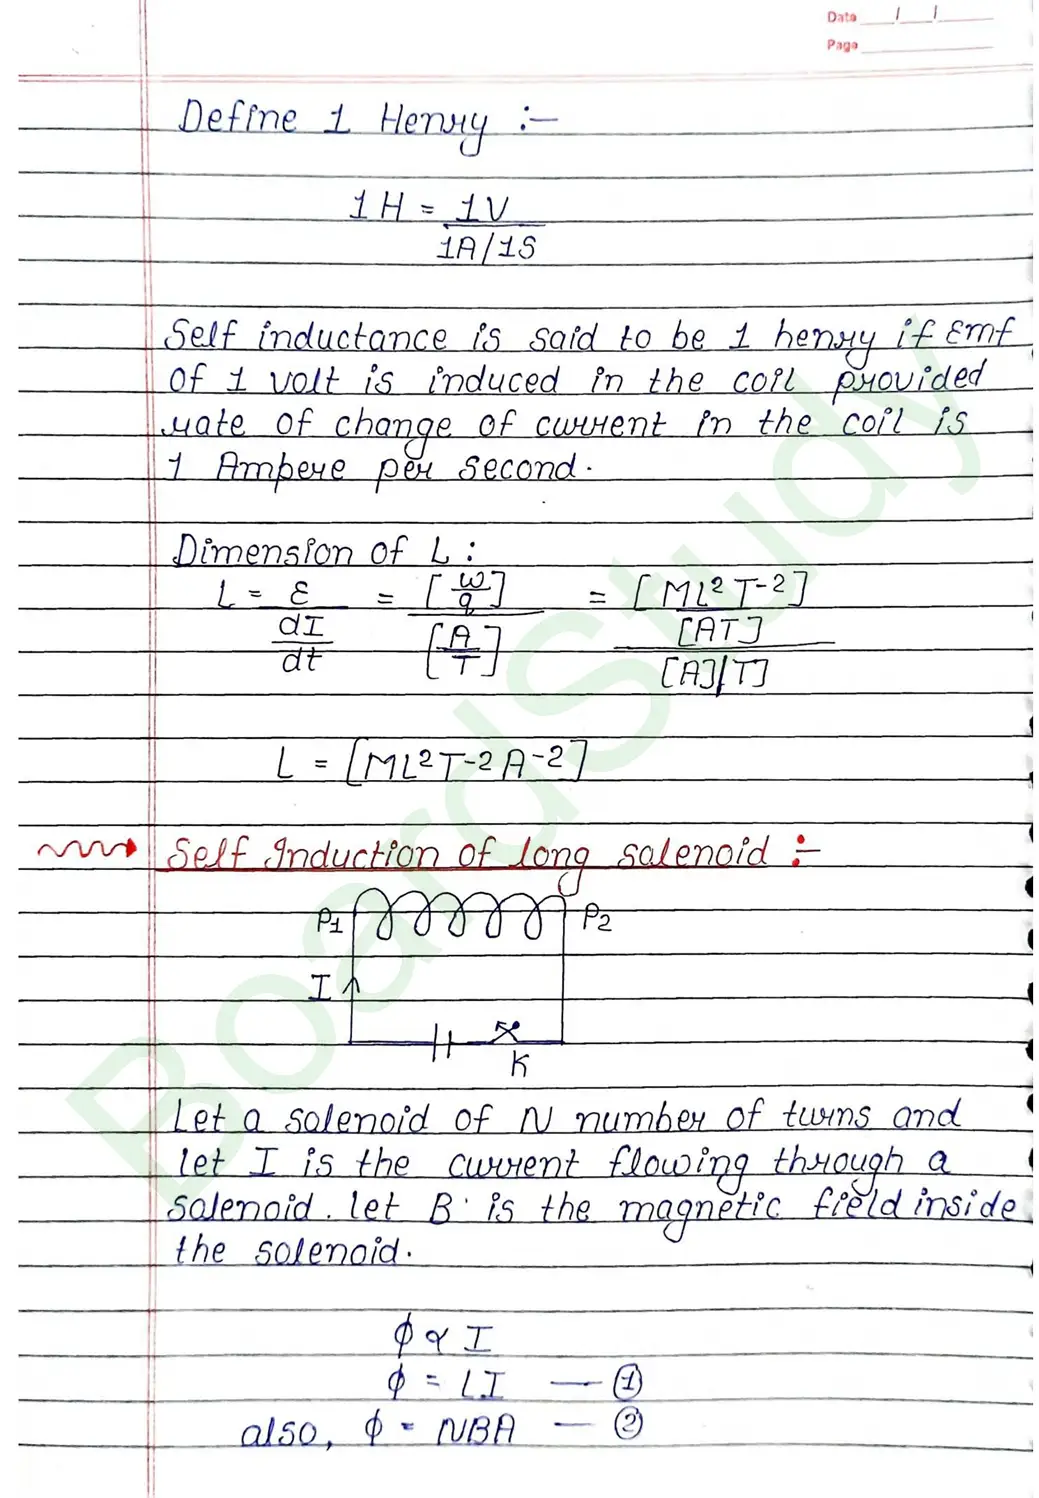 Date ___/___/______
Page ______________
Define 1 Henry :-
1H = 1V
1A/1S
Self inductance is said to be 1 henry if Emf
of 1 volt is induced in the coil provided
rate of change of current in the coil is
1 Ampere per second.
Dimension of L :
L = ε = [w/q] = [ML²T-2]
dI/dt [A/T] [AT]
[A]/[T]
L = [ML²T-2A-2]
Self Induction of long solenoid :-
P1 P2
I
K
Let a solenoid of N number of turns and
let I is the current flowing through a
solenoid. let B is the magnetic field inside
the solenoid.
ϕ ∝ I
ϕ = LI — ①
also, ϕ = NBA — ②
BoardStudy